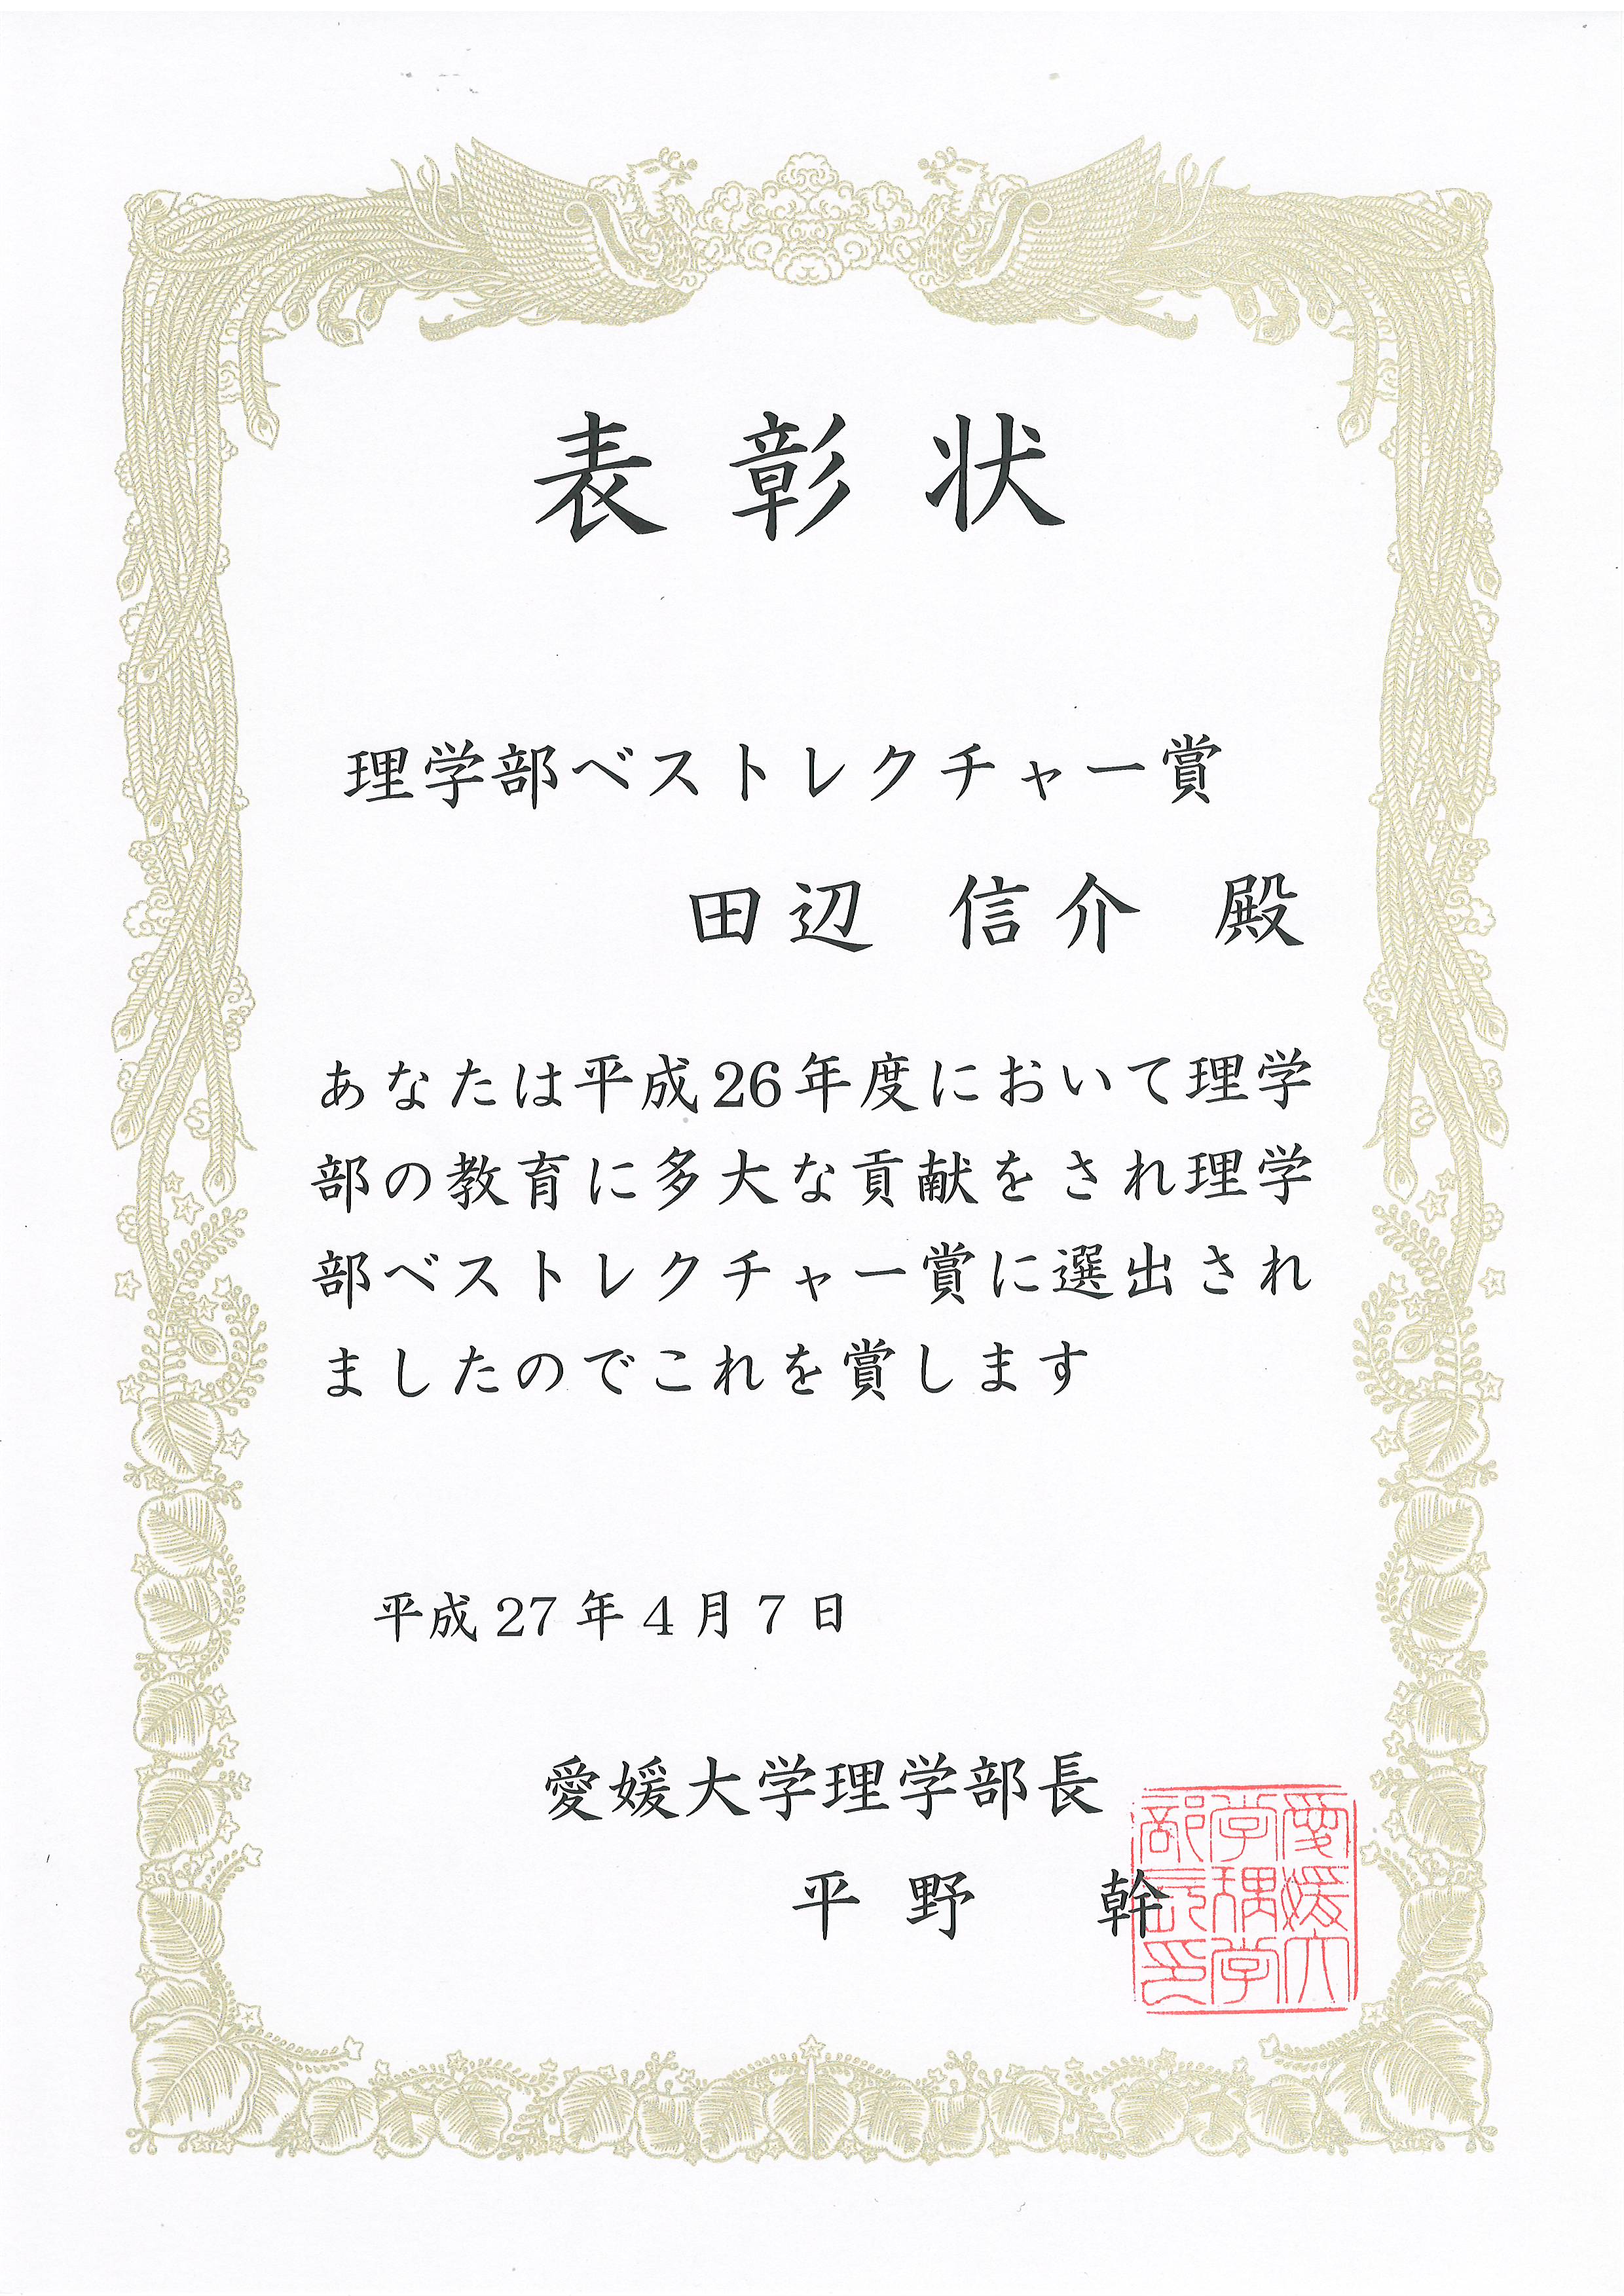 表彰状
理学部ベストレクチャー賞
田辺 信介 殿
あなたは平成26年度において理学
部の教育に多大な貢献をされ理学
部ベストレクチャー賞に選出され
ましたのでこれを賞します
平成27年4月7日
愛媛大学理学部長
平野 幹
愛媛大
学理学
部長印